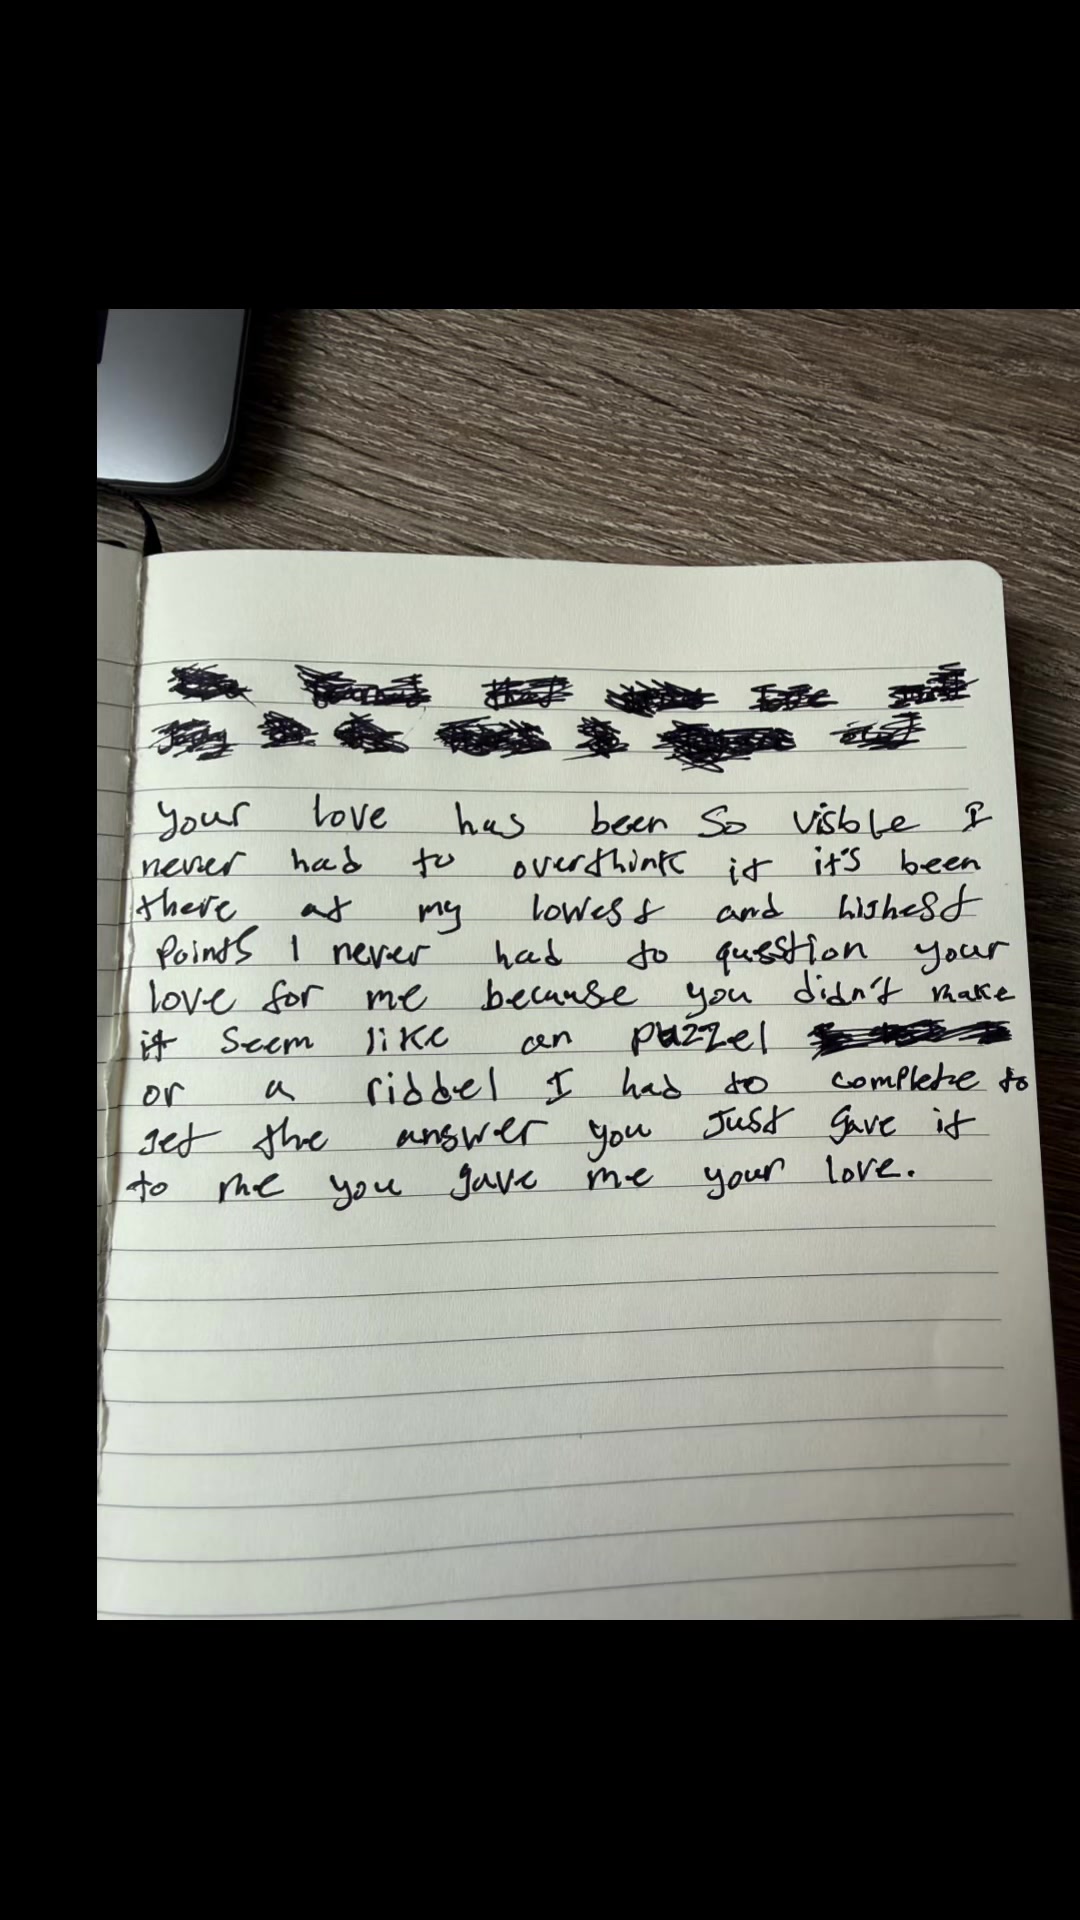 Your love has been so visble I
never had to overthink it it's been
there at my lowest and highest
points I never had to question your
love for me because you didn't make
it seem like an puzzel
or a riddel I had to complete to
get the answer you just gave it
to me you gave me your love.